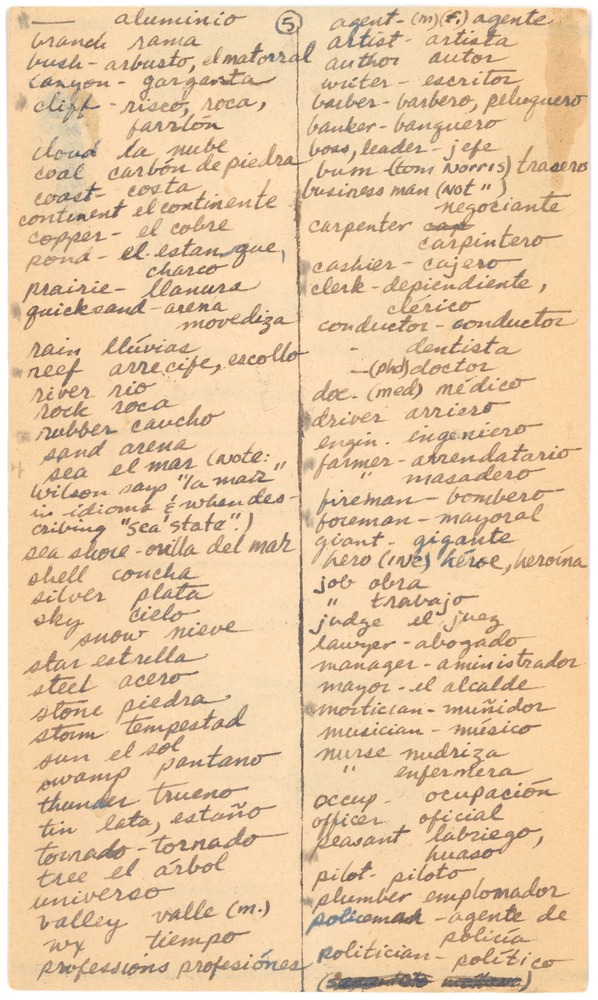 5
— aluminio
branch rama
bush - arbusto, el matorral
canyon - garganta
cliff - risco, roca,
farrlón
cloud la nube
coal carbón de piedra
coast - costa
continent el continente
copper - el cobre
pond - el estanque,
charco
prairie - llanura
quicksand - arena
movediza
rain llúvias
reef arrecife, escollo
river rio
rock roca
rubber caucho
sand arena
sea el mar (Note:
Wilson says "la mar"
in idioms & when des-
cribing "sea state")
sea shore - orilla del mar
shell concha
silver plata
sky cielo
snow nieve
star estrella
steel acero
stone piedra
storm tempestad
sun el sol
swamp pantano
thunder trueno
tin lata, estaño
tornado - tornado
tree el árbol
universo
valley valle (m.)
wx tiempo
professions profesiónes
agent - (m)(f.) agente
artist - artista
author autor
writer - escritor
barber - barbero, peluquero
banker - banquero
boss, leader - jefe
bum (tom Norris) trasero
business man (not ")
negociante
carpenter
carpintero
cashier - cajero
clerk - depiendiente,
clérico
conductor - conductor
- dentista
— (phd) doctor
doc. (med) médico
driver arriero
engin. ingeniero
farmer - arrendatario
" masadero
fireman - bombero
foreman - mayoral
giant - gigante
hero (INC) héroe, heroína
job obra
" trabajo
judge el juez
lawyer - abogado
manager - aministrador
mayor - el alcalde
mortician - muñidor
musician - músico
nurse nudriza
" enfermera
occup. ocupación
officer oficial
peasant labriego,
huaso
pilot - piloto
plumber emplomador
policeman - agente de
policía
politician - político